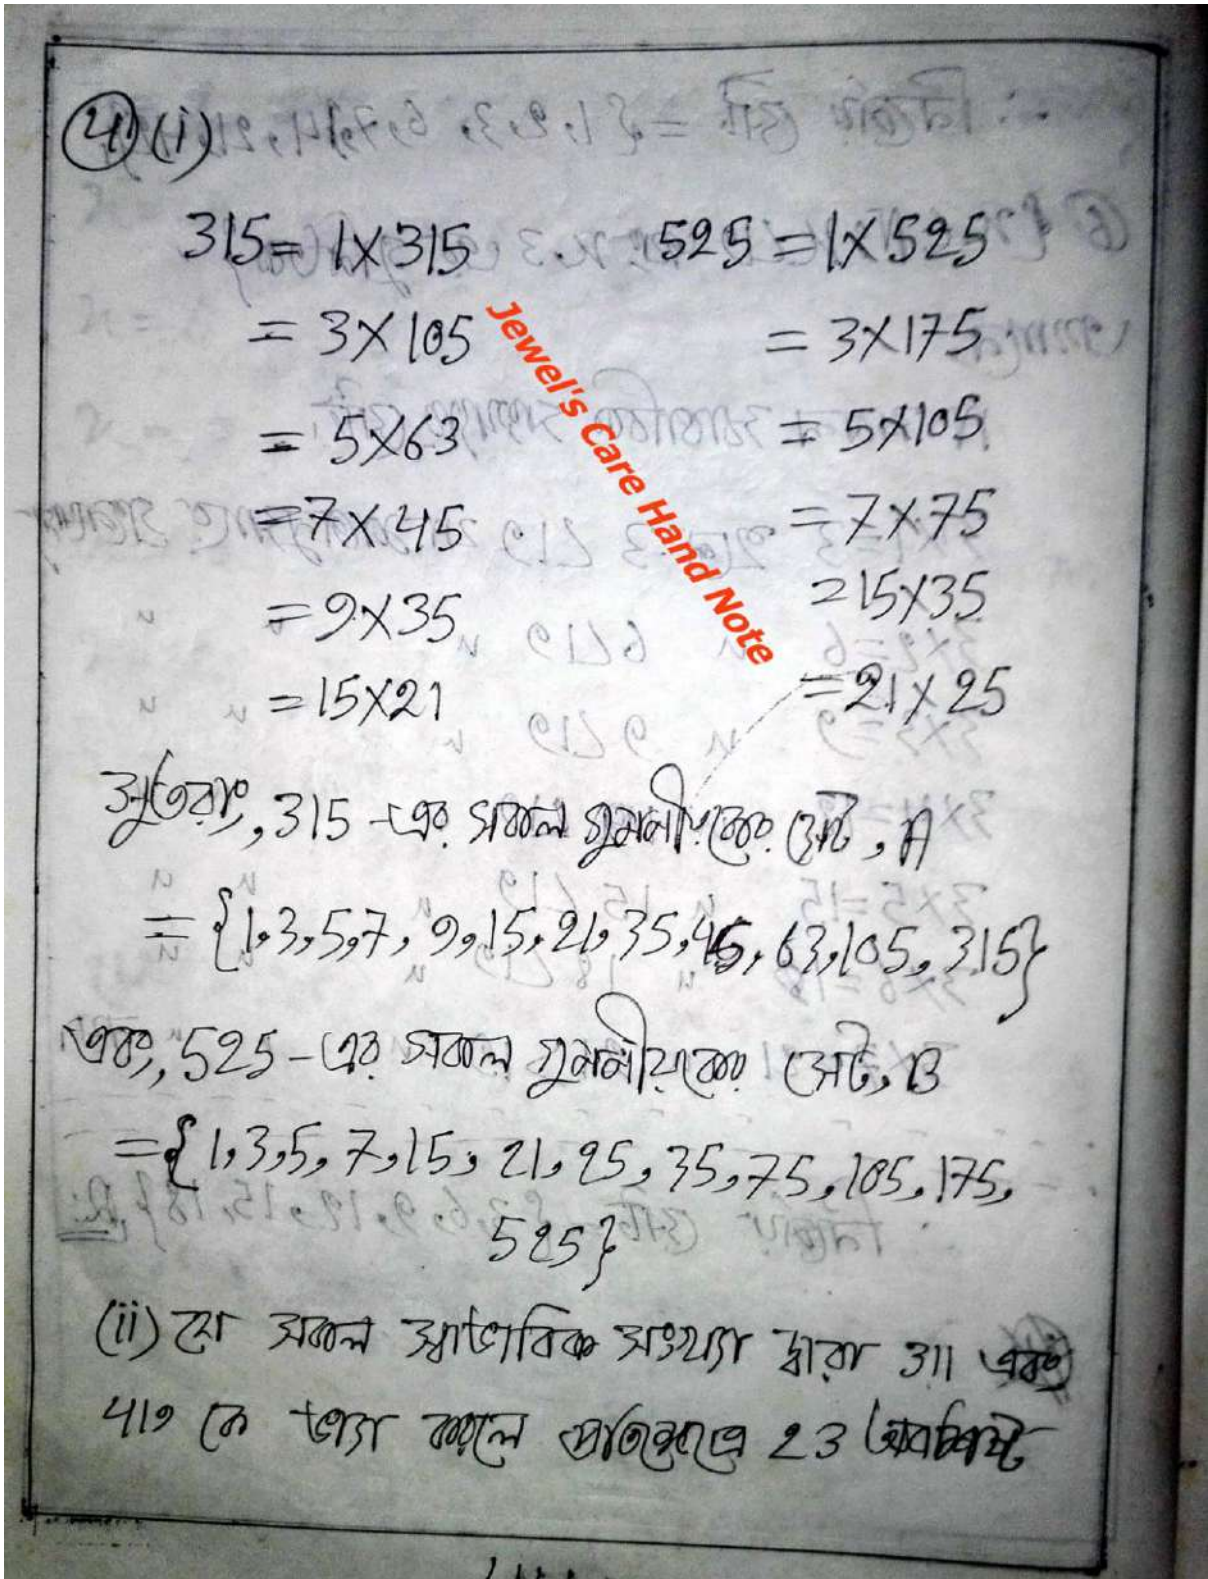 4 (i)
315 = 1 × 315 525 = 1 × 525
= 3 × 105 = 3 × 175
= 5 × 63 = 5 × 105
= 7 × 45 = 7 × 75
= 9 × 35 = 15 × 35
= 15 × 21 = 21 × 25
Jewel's Care Hand Note
সুতরাং, 315 -এর সকল গুণনীয়কের সেট, A
= {1, 3, 5, 7, 9, 15, 21, 35, 45, 63, 105, 315}
এবং, 525 - এর সকল গুণনীয়কের সেট, B
= {1, 3, 5, 7, 15, 21, 25, 35, 75, 105, 175,
525}
(ii) যে সকল স্বাভাবিক সংখ্যা দ্বারা 311 এবং
419 কে ভাগ করলে প্রতিক্ষেত্রে 23 অবশিষ্ট